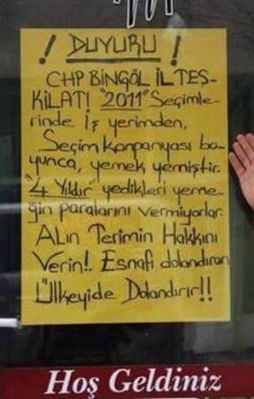 ! DUYURU !
CHP BİNGÖL İL TEŞ-
KİLATI! "2011" Seçimle-
rinde İş yerimden,
Seçim Kanpanyası bo-
yunca, yemek yemiştir.
"4 Yıldır" yedikleri yeme-
ğin paralarını vermiyorlar.
Alın Terimin Hakkını
Verin!. Esnafı dolandıran
Ülkeyide Dolandırır!!
Hoş Geldiniz